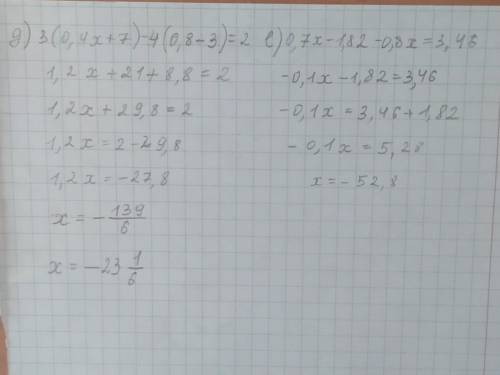 д) 3(0,4x+7)-4(0,8-3)=2
1,2x+21+8,8=2
1,2x+29,8=2
1,2x=2-29,8
1,2x=-27,8
x=-139/6
x=-23 1/6
е) 0,7x-1,82-0,8x=3,46
-0,1x-1,82=3,46
-0,1x=3,46+1,82
-0,1x=5,28
x=-52,8